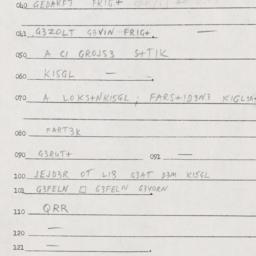 040 GEDAKFT FRIG+
043 G3ZOLT G3VIN FRIG+. —
050 A CI GROJS3 S+TIK
060 KISGL —
070 A LOKS+NKISGL ; FARS+ID3N3
080 FART3K
090 G3RUT+ 091 —
100 JEJD3R OT LIB G3AT D3M KISGL
103 G3FELN □ G3FELN G3VORN
110 QRR
120 —
121 —